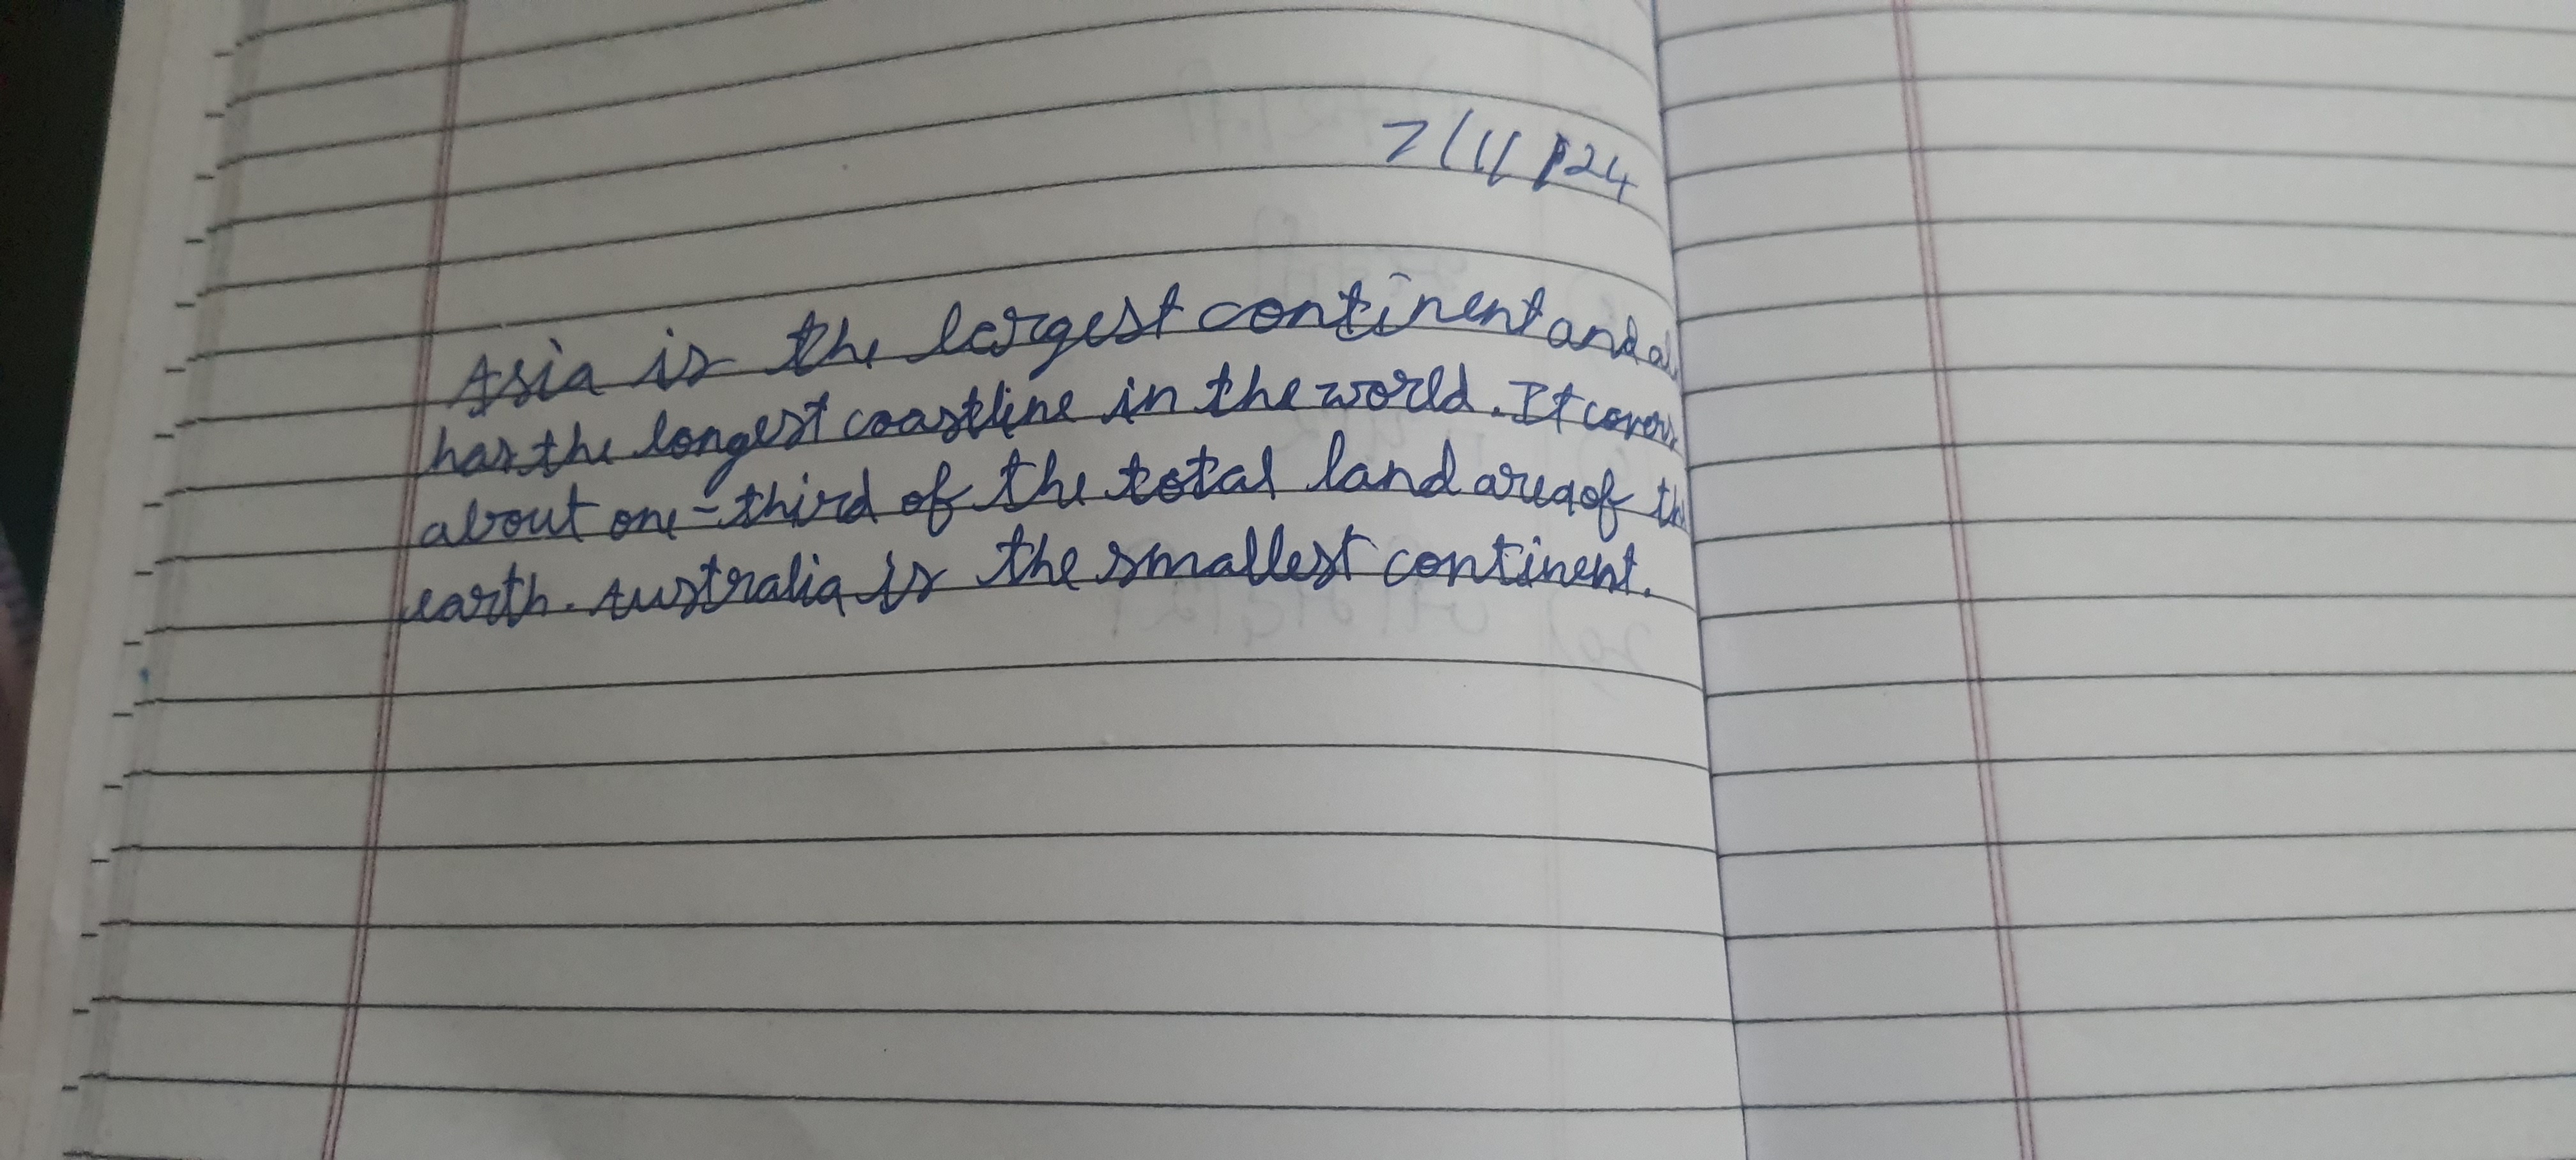 7/11/24
Asia is the largest continent and
has the longest coastline in the world. It covers
about one-third of the total land area of
earth. Australia is the smallest continent.